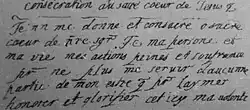 consecration au sacré coeur de Jesus
Je nn me donne et consacre
coeur de nre sgr Je ma persone et
ma vie mes actions peines et soufrance
pr ne plus me servir d'aucune
partie de mon estre q'pr laymer
honorer et glorifier cet icy ma volonté